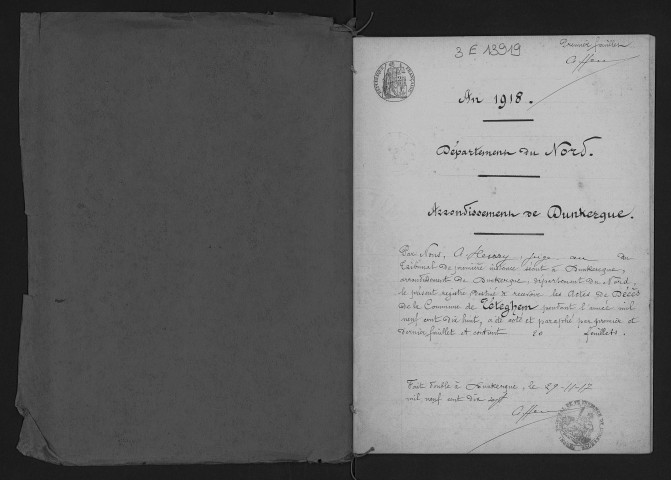 3 E 13919
Premier feuillet
An 1918.
Département du Nord.
Arrondissement de Dunkerque.
Par Nous, juge au du
Tribunal de première instance séant à Dunkerque,
arrondissement de Dunkerque, département du Nord,
le présent registre destiné à recevoir les Actes de Décès
de la Commune de Téteghem pendant l'année mil
neuf cent dix huit, a été coté et paraphé par premier et
dernier feuillet et contient 20 feuillets.
Fait double à Dunkerque, le 29-11-17
mil neuf cent dix sept